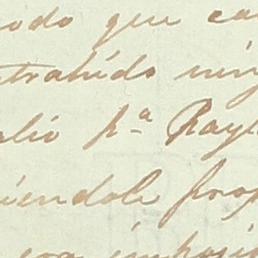 odo que ca
trahído nin
alió pª Rayl
iendole prop
era imposi